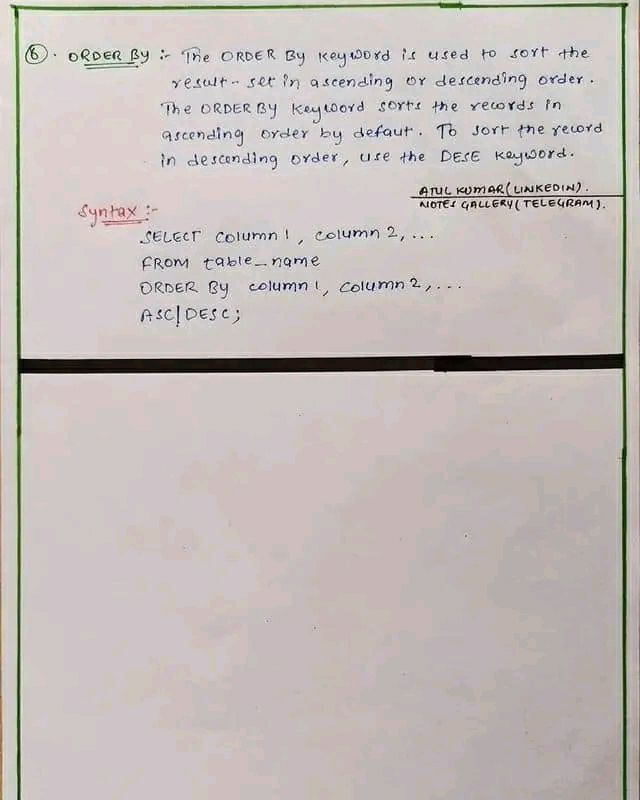 6. ORDER By :- The ORDER By Keyword is used to sort the
result-set in ascending or descending order.
The ORDER By Keyword sorts the records in
ascending order by defaut. To sort the record
in descending order, use the DESE Keyword.
ATUL KUMAR (LINKEDIN).
NOTES GALLERY (TELEGRAM).
Syntax :-
SELECT Column 1, Column 2, ...
FROM table_name
ORDER By column 1, Column 2, ...
ASC|DESC;